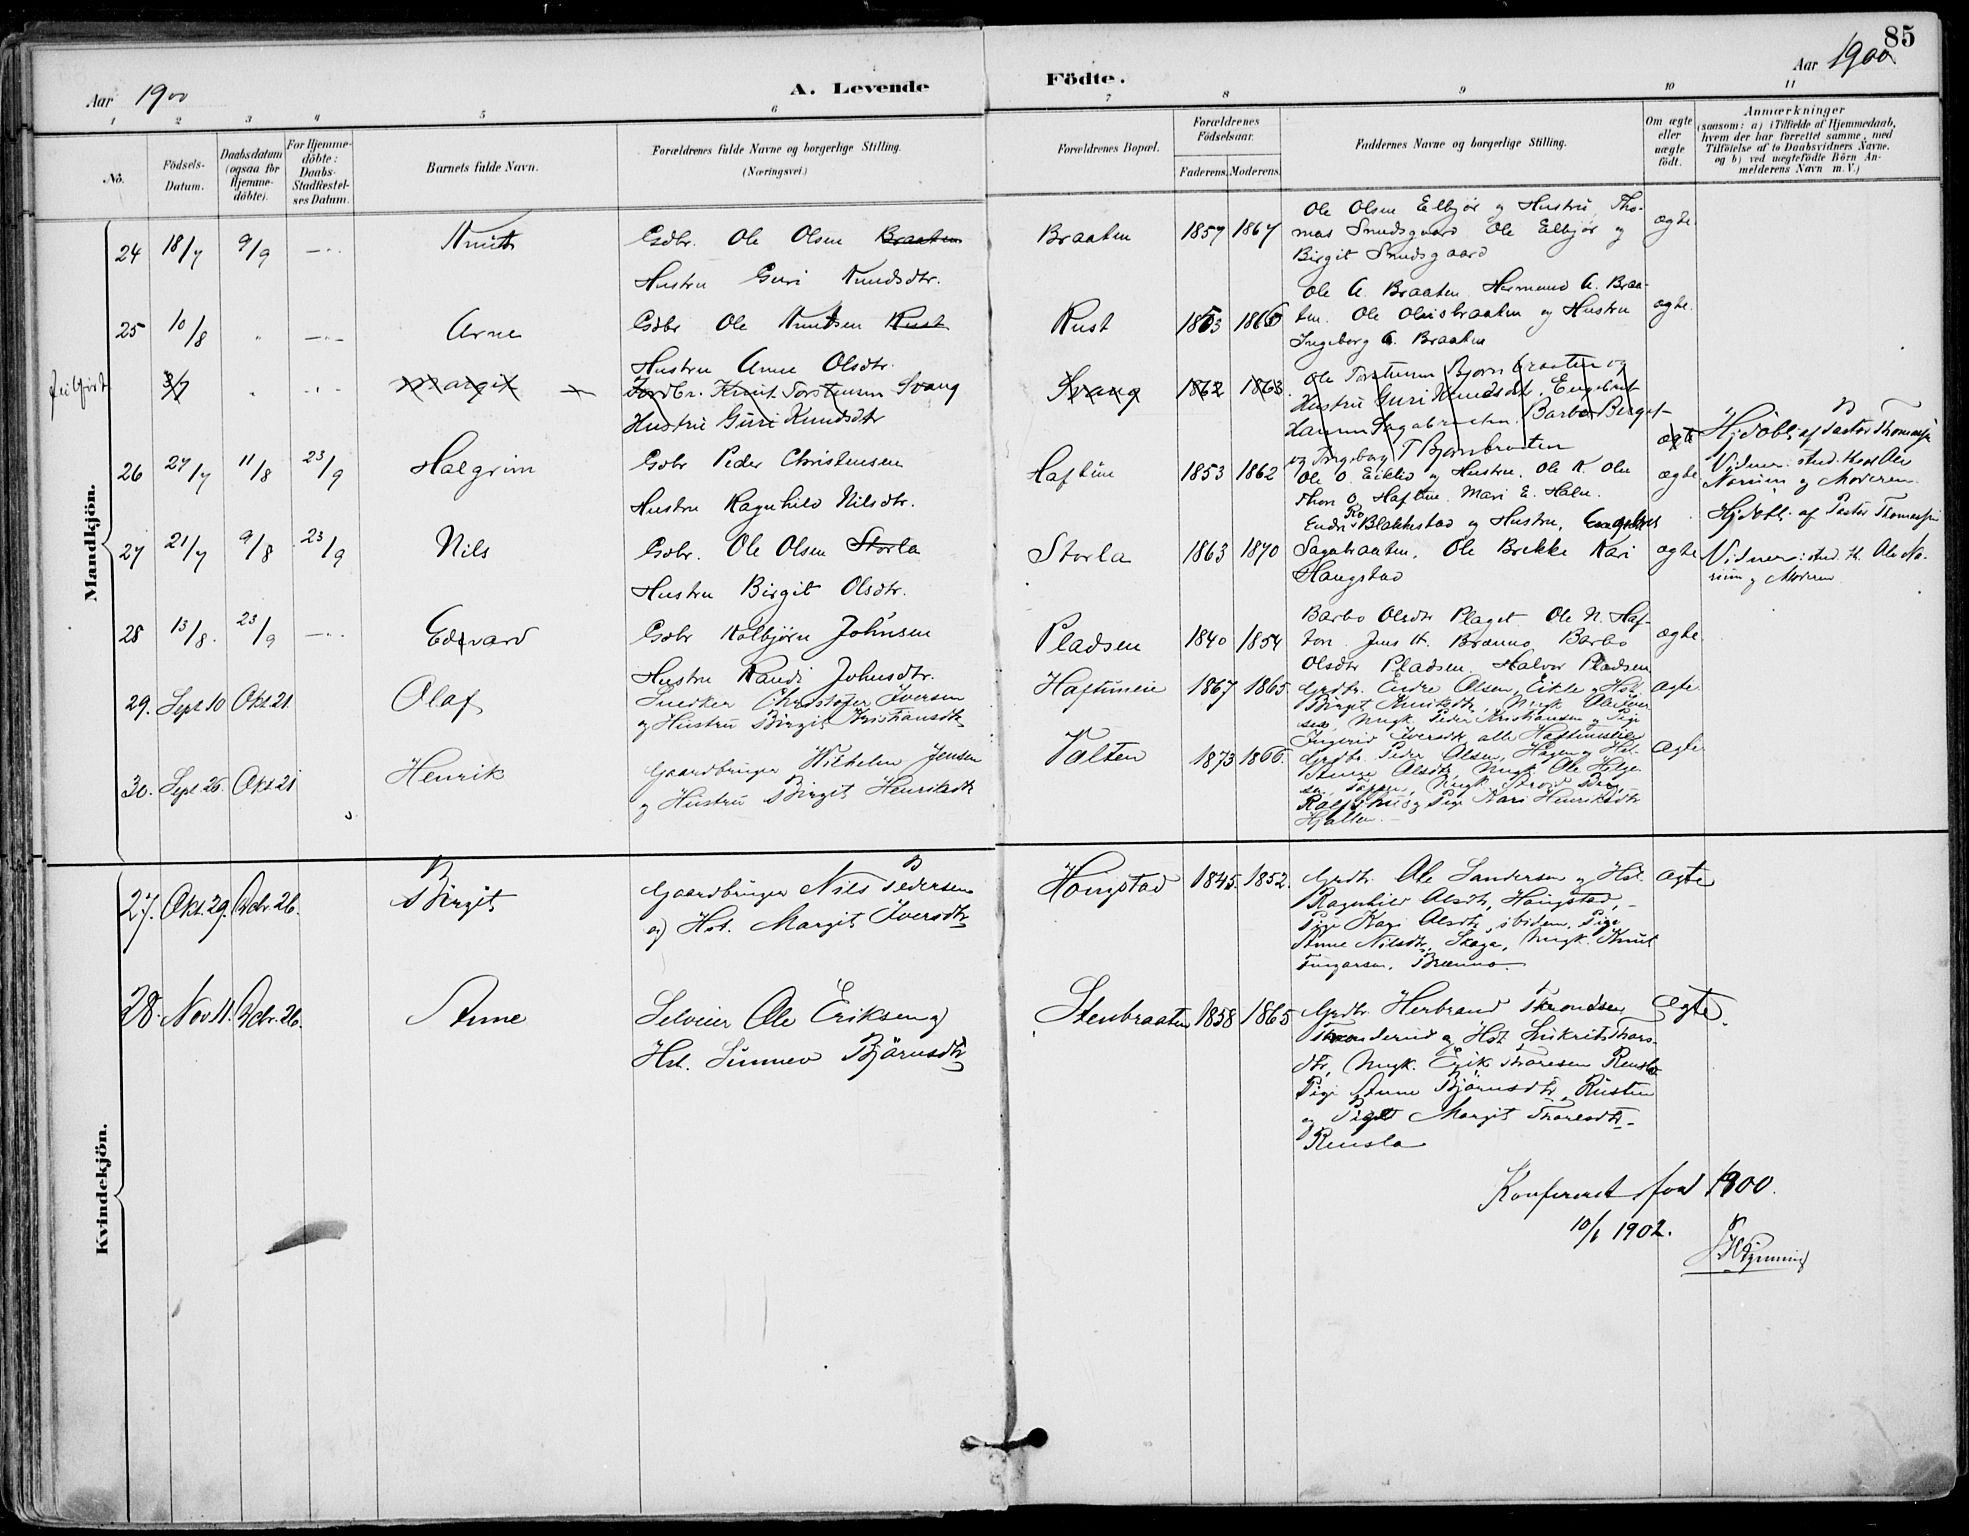 85
Aar 1900
A. Levende Födte.
Aar 1900
1 2 3 4 5 6 7 8 9 10 11
No.
Födsels-Datum.
Daabsdatum (ogsaa för Hjemme-döbte).
For Hjemme-döbte: Daabs-Stadfæstel-ses Datum.
Barnets fulde Navn.
Forældrenes fulde Navne og borgerlige Stilling. (Næringsvei.)
Forældrenes Bopæl.
Forældrenes Födselsaar.
Faderens. Moderens.
Faddernes Navne og borgerlige Stilling.
Om ægte eller uægte födt.
Anmærkninger
(saasom: a) i Tilfælde af Hjemmedaab,
hvem der har forrettet samme, med
Tilföielse af to Daabsvidners Navne.
og b) ved uægtefödte Börn An-
melderens Navn m. V.)
Mandkjön.
24 18/7 9/9 — Knut Gdbr. Ole Olsen Braaten
Hustru Guri Knudsdtr.
Braaten 1857 1867
Ole Olsen Elbjør og Hustru, Tho-
mas Smedsgaard Ole Elbjör og
Birgit Smedsgaard
ægte
25 10/8 " — Arne Gdbr Ole Knudsen Rust
Hustru Anne Olsdtr.
Rust 1853 1860
Ole A. Braaten Hermund A. Braa-
ten. Ole Olsbraaten og Hustru
Ingeborg A. Braaten
ægte
feilført 3/7 " " Margit Jordbr. Knut Torstensen Svang
Hustru Guri Knudsdtr
Svang 1862 1863
Ole Torstensen Bjørnbraaten og
Hustru Guri Knudsdt, Engebret
Hansen Sagabraaten, Barbo Berget
og Ingeborg T Bjørnbraaten
ægte
26 27/7 11/8 23/9 Halgrim Gdbr Peder Christensen
Hustru Ragnhild Nilsdtr.
Haftun 1853 1862
Ole O. Eiklid og Hustru. Ole K. Ole
Thor O. Haftun. Mari E. Halu.
ægte
Hjdöbt af Pastor Thomassen
Vidner: stud. theol Ole
Norum og Moderen.
27 21/7 9/8 23/9 Nils Gdbr. Ole Olsen Storla
Hustru Birgit Olsdtr.
Storla 1863 1870
Endre Ro Blakkestad og Hustru, Engebret
Sagabraaten, Ole Brekke Kari
Haugstad
ægte
Hjdöbt af Pastor Thomassen
Vidner: stud. th. Ole No-
rum og Moderen
28 13/8. 23/9 — Edvard Gdbr Kolbjørn Johnsen
Hustru Randi Johnsdtr.
Pladsen 1840 1854
Barbo Olsdtr Plaget Ole N. Haf-
ton Jens H. Brænno Barbo
Olsdtr Pladsen. Halvor Pladsen
ægte
29. Sept 10 Okt 21 Olaf Snedker Christofer Iversen
og Hustru Birgit Kristiansdtr
Haftunmeie 1867 1865.
Grdbr. Endre Olsen, Eikle og Hst.
Birgit Knutsdtr, Ungk Ole Iver
sen, Ungk. Peder Kristiansen og Pige
Ingerid Iversdtr, alle Haftunseie
ægte.
30. Sept 26. Okt 21 Henrik Gaardbruger Wilhelm Jensen
og Hustru Birgit Henriksdtr
Valten 1873 1866.
Grdbr. Peder Olsen, Hagen og Hst.
Anne Olsdtr, Ungk Ole Helge
sen, Toppen, Ungk
og Pige Kari Henriksdtr
Hjalten.
ægte
Kvindekjön.
27. Okt 29. Dcbr. 26. Birgit Gaardbruger Nils Pedersen
og Hst. Margit Iversdtr
Haugstad 1845. 1852.
Grdbr. Ole Sandersen og Hst.
Ragnhild Olsdtr, Haugstad,
Pige Kari Olsdtr, ibidem, Pige
Anne Nilsdtr, Skaga, Ungk. Knut
Tingarsen, Brænno.
ægte
28. Nov 11. Dcbr. 26. Anne Selveier Ole Eriksen og
Hst. Sunnev Björnsdtr
Stenbraaten 1858 1865
Grdbr. Herbrand Throndsen
Thronderud og Hst Thors-
dtr, Ungk. Erik Thoresen Rensla
Pige Anne Björnsdtr, Rusten
og Pige Margit Thoresdtr
Rensla
ægte.
Konfereret for 1900.
10/1 1902.